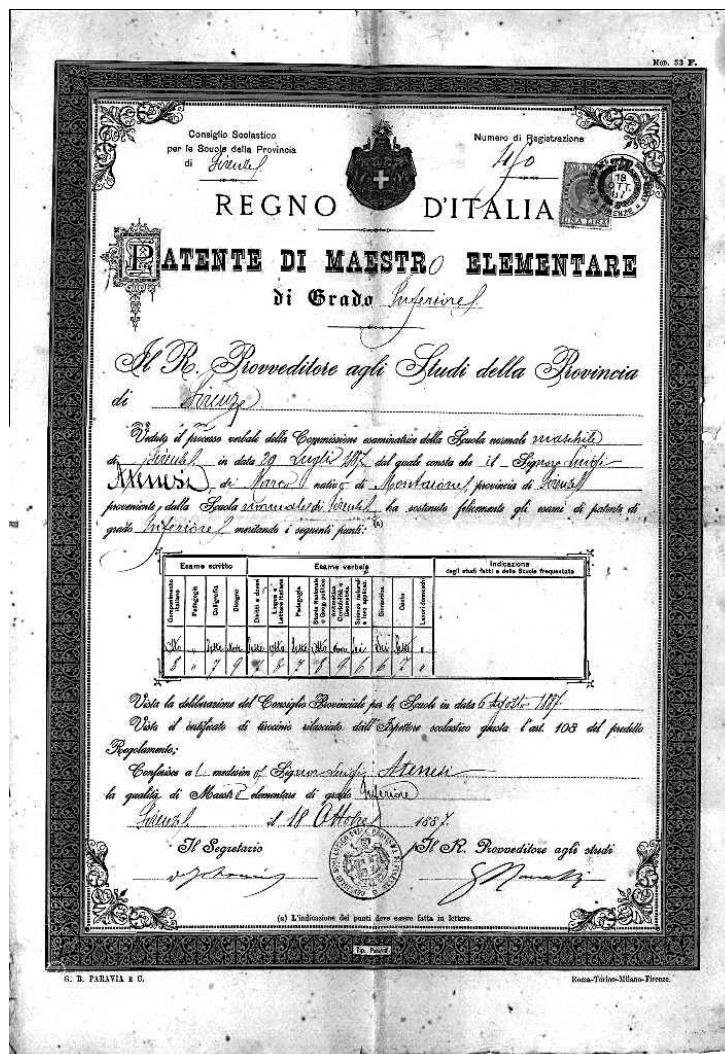 MOD. 33 F.
Consiglio Scolastico
per le Scuole della Provincia
di Firenze
Numero di Registrazione
UNA LIRA
18
OTT.
REGNO D'ITALIA
PATENTE DI MAESTRO ELEMENTARE
di Grado Inferiore
Il R. Provveditore agli Studi della Provincia
di Firenze
Veduto il processo verbale della Commissione esaminatrice della Scuola normale maschile
di Firenze in data 29 Luglio 1887 dal quale consta che il Signor Luigi
di Marco nativo di Montaione provincia di Firenze
proveniente dalla Scuola normale di Firenze ha sostenuto felicemente gli esami di patente di
grado Inferiore meritando i seguenti punti: (a)
Esame scritto
Esame verbale
Indicazione
degli studi fatti e delle Scuole frequentate
Componimento italiano
Pedagogia
Calligrafia
Disegno
Diritti e doveri
Lingua e Lettere italiane
Pedagogia
Storia Nazionale e Geog. politica
Aritmetica Contabilità e Geometria
Scienze naturali e loro applicaz.
Ginnastica
Canto
Lavori donneschi
Otto " Sette Nove Sette Otto Sette Otto Nove Sei Sei Sette "
8 " 7 9 7 8 7 8 9 6 6 7 "
Vista la deliberazione del Consiglio Provinciale per le Scuole in data 6 Agosto 1887.
Visto il certificato di tirocinio rilasciato dall'Ispettore scolastico giusta l'art. 108 del predetto
Regolamento;
Conferisce al medesimo Signor Luigi Atenesi
la qualità di Maestro elementare di grado Inferiore
Firenze il 18 Ottobre 1887.
Il Segretario
Il R. Provveditore agli studi
(a) L'indicazione dei punti deve essere fatta in lettere.
Tip. Paravia
G. B. PARAVIA E C.
Roma-Torino-Milano-Firenze.